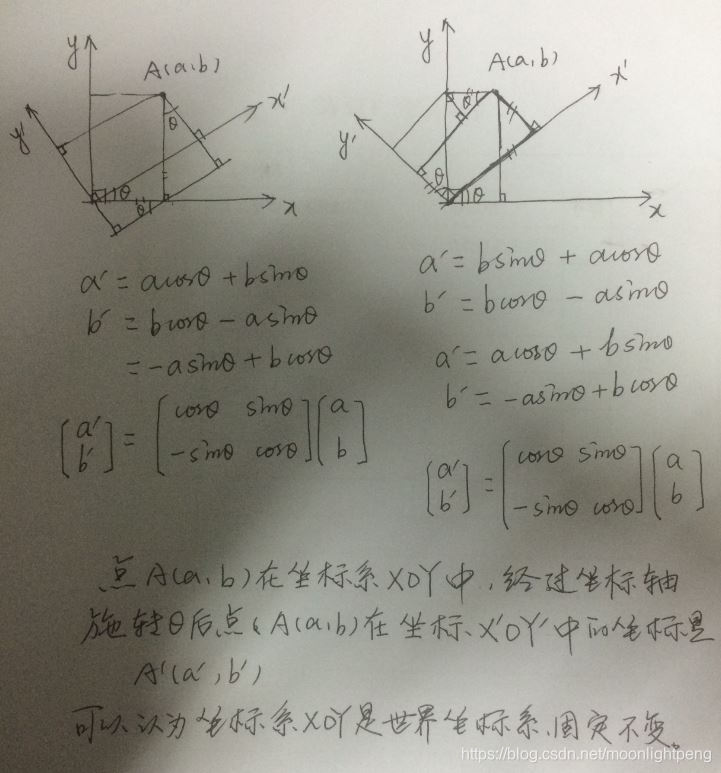 y
A(a,b)
x'
y'
θ
θ
θ
x
a' = acosθ + bsinθ
b' = bcosθ - asinθ
= -asinθ + bcosθ
[a' b'] = [cosθ sinθ -sinθ cosθ] [a b]
y
A(a,b)
x'
y'
θ
θ
θ
x
a' = bsinθ + acosθ
b' = bcosθ - asinθ
a' = acosθ + bsinθ
b' = -asinθ + bcosθ
[a' b'] = [cosθ sinθ -sinθ cosθ] [a b]
点A(a,b)在坐标系XOY中,经过坐标轴
施转θ后点(A(a,b)在坐标、X'OY'中的坐标是
A'(a',b')
可以认为坐标系XOY是世界坐标系,固定不变。
https://blog.csdn.net/moonlightpeng